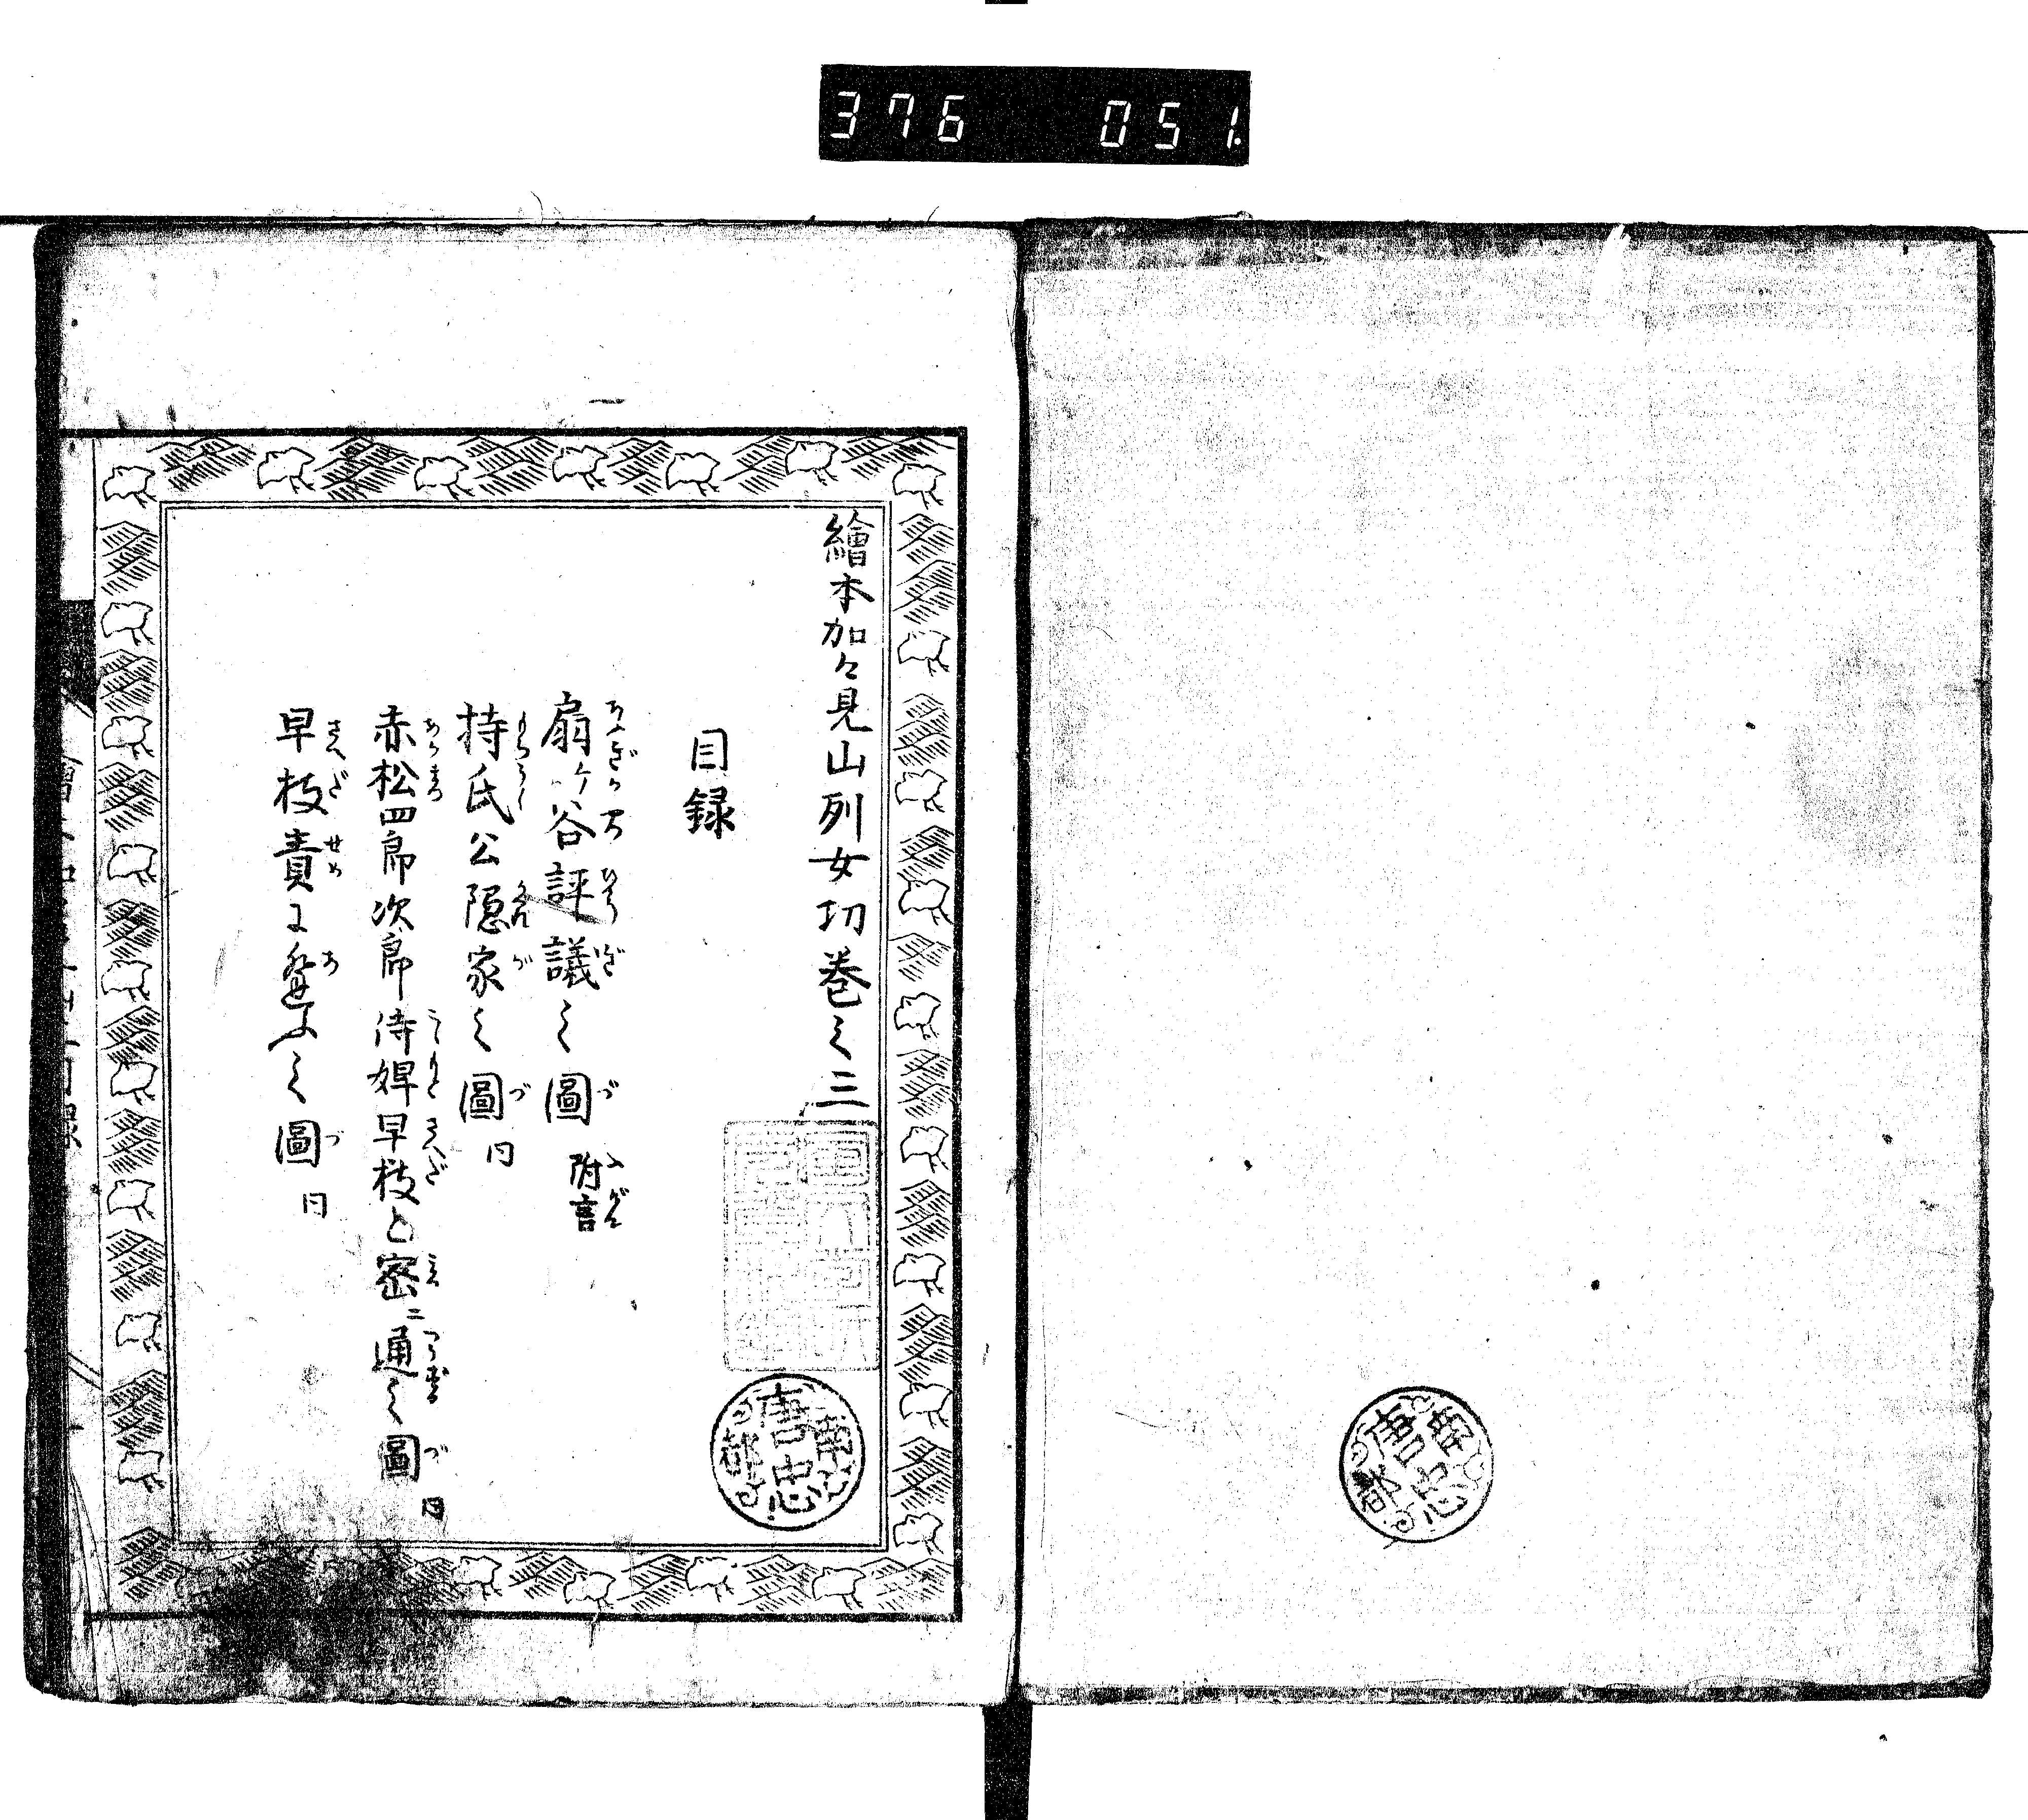 376 051
繪本加々見山列女功巻之三
目録
扇ヶ谷評議之圖 附言
持氏公隠家之圖 同
赤松四郎次郎侍婢早枝と密ニ通之圖 同
早枝責に逢ふ之圖 同
南
唐忠
都
南
唐忠
都